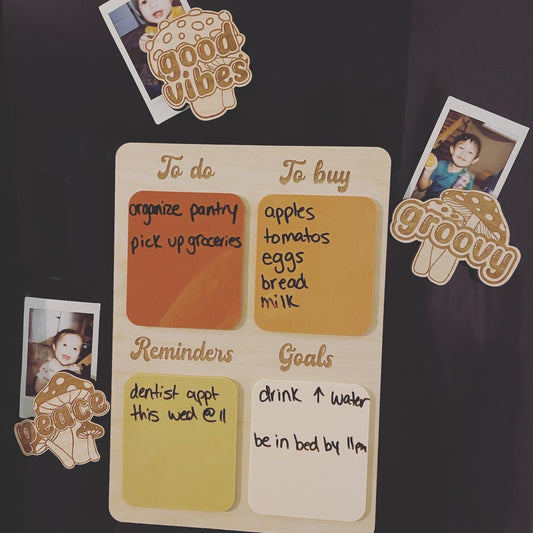 good
vibes
To do
To buy
organize pantry
pick up groceries
apples
tomatos
eggs
bread
milk
groovy
Reminders
Goals
dentist appt
this wed @ 11
drink ↑ water
be in bed by 11pm
peace